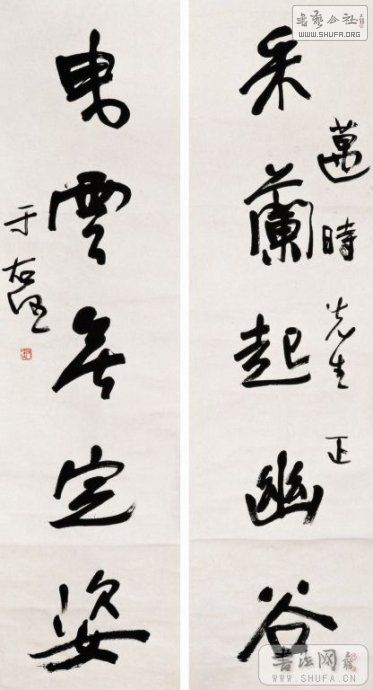 采蘭起幽谷
邁時先生 正
東雲無定姿
于右任
書藝公社
WWW.SHUFA.ORG
書法网
WWW.SHUFA.CN